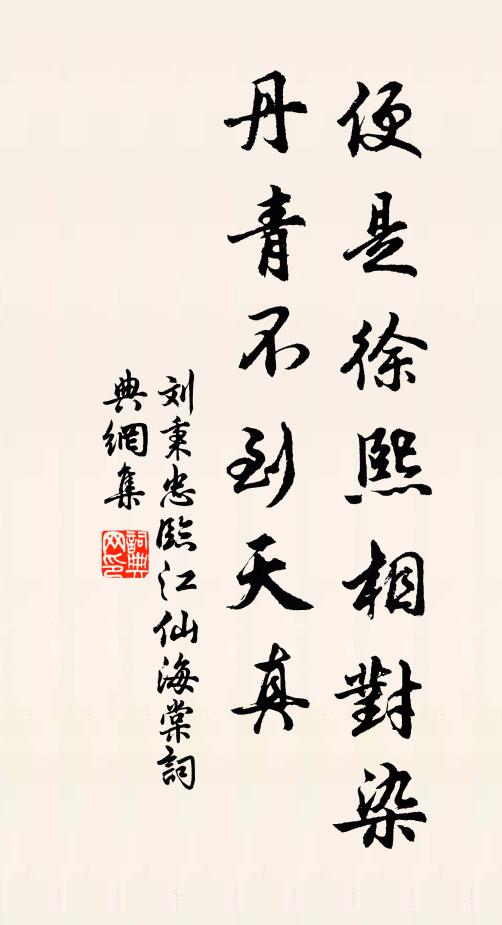 便是徐熙相對染
丹青不到天真
刘秉忠臨江仙海棠詞
典網集
詞典网印